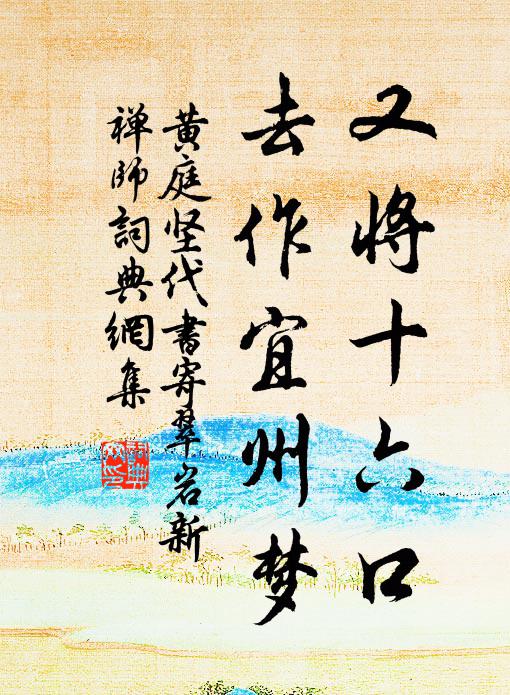 又将十六口
去作宜州梦
黄庭坚代書寄翠岩新
禅师詞典網集